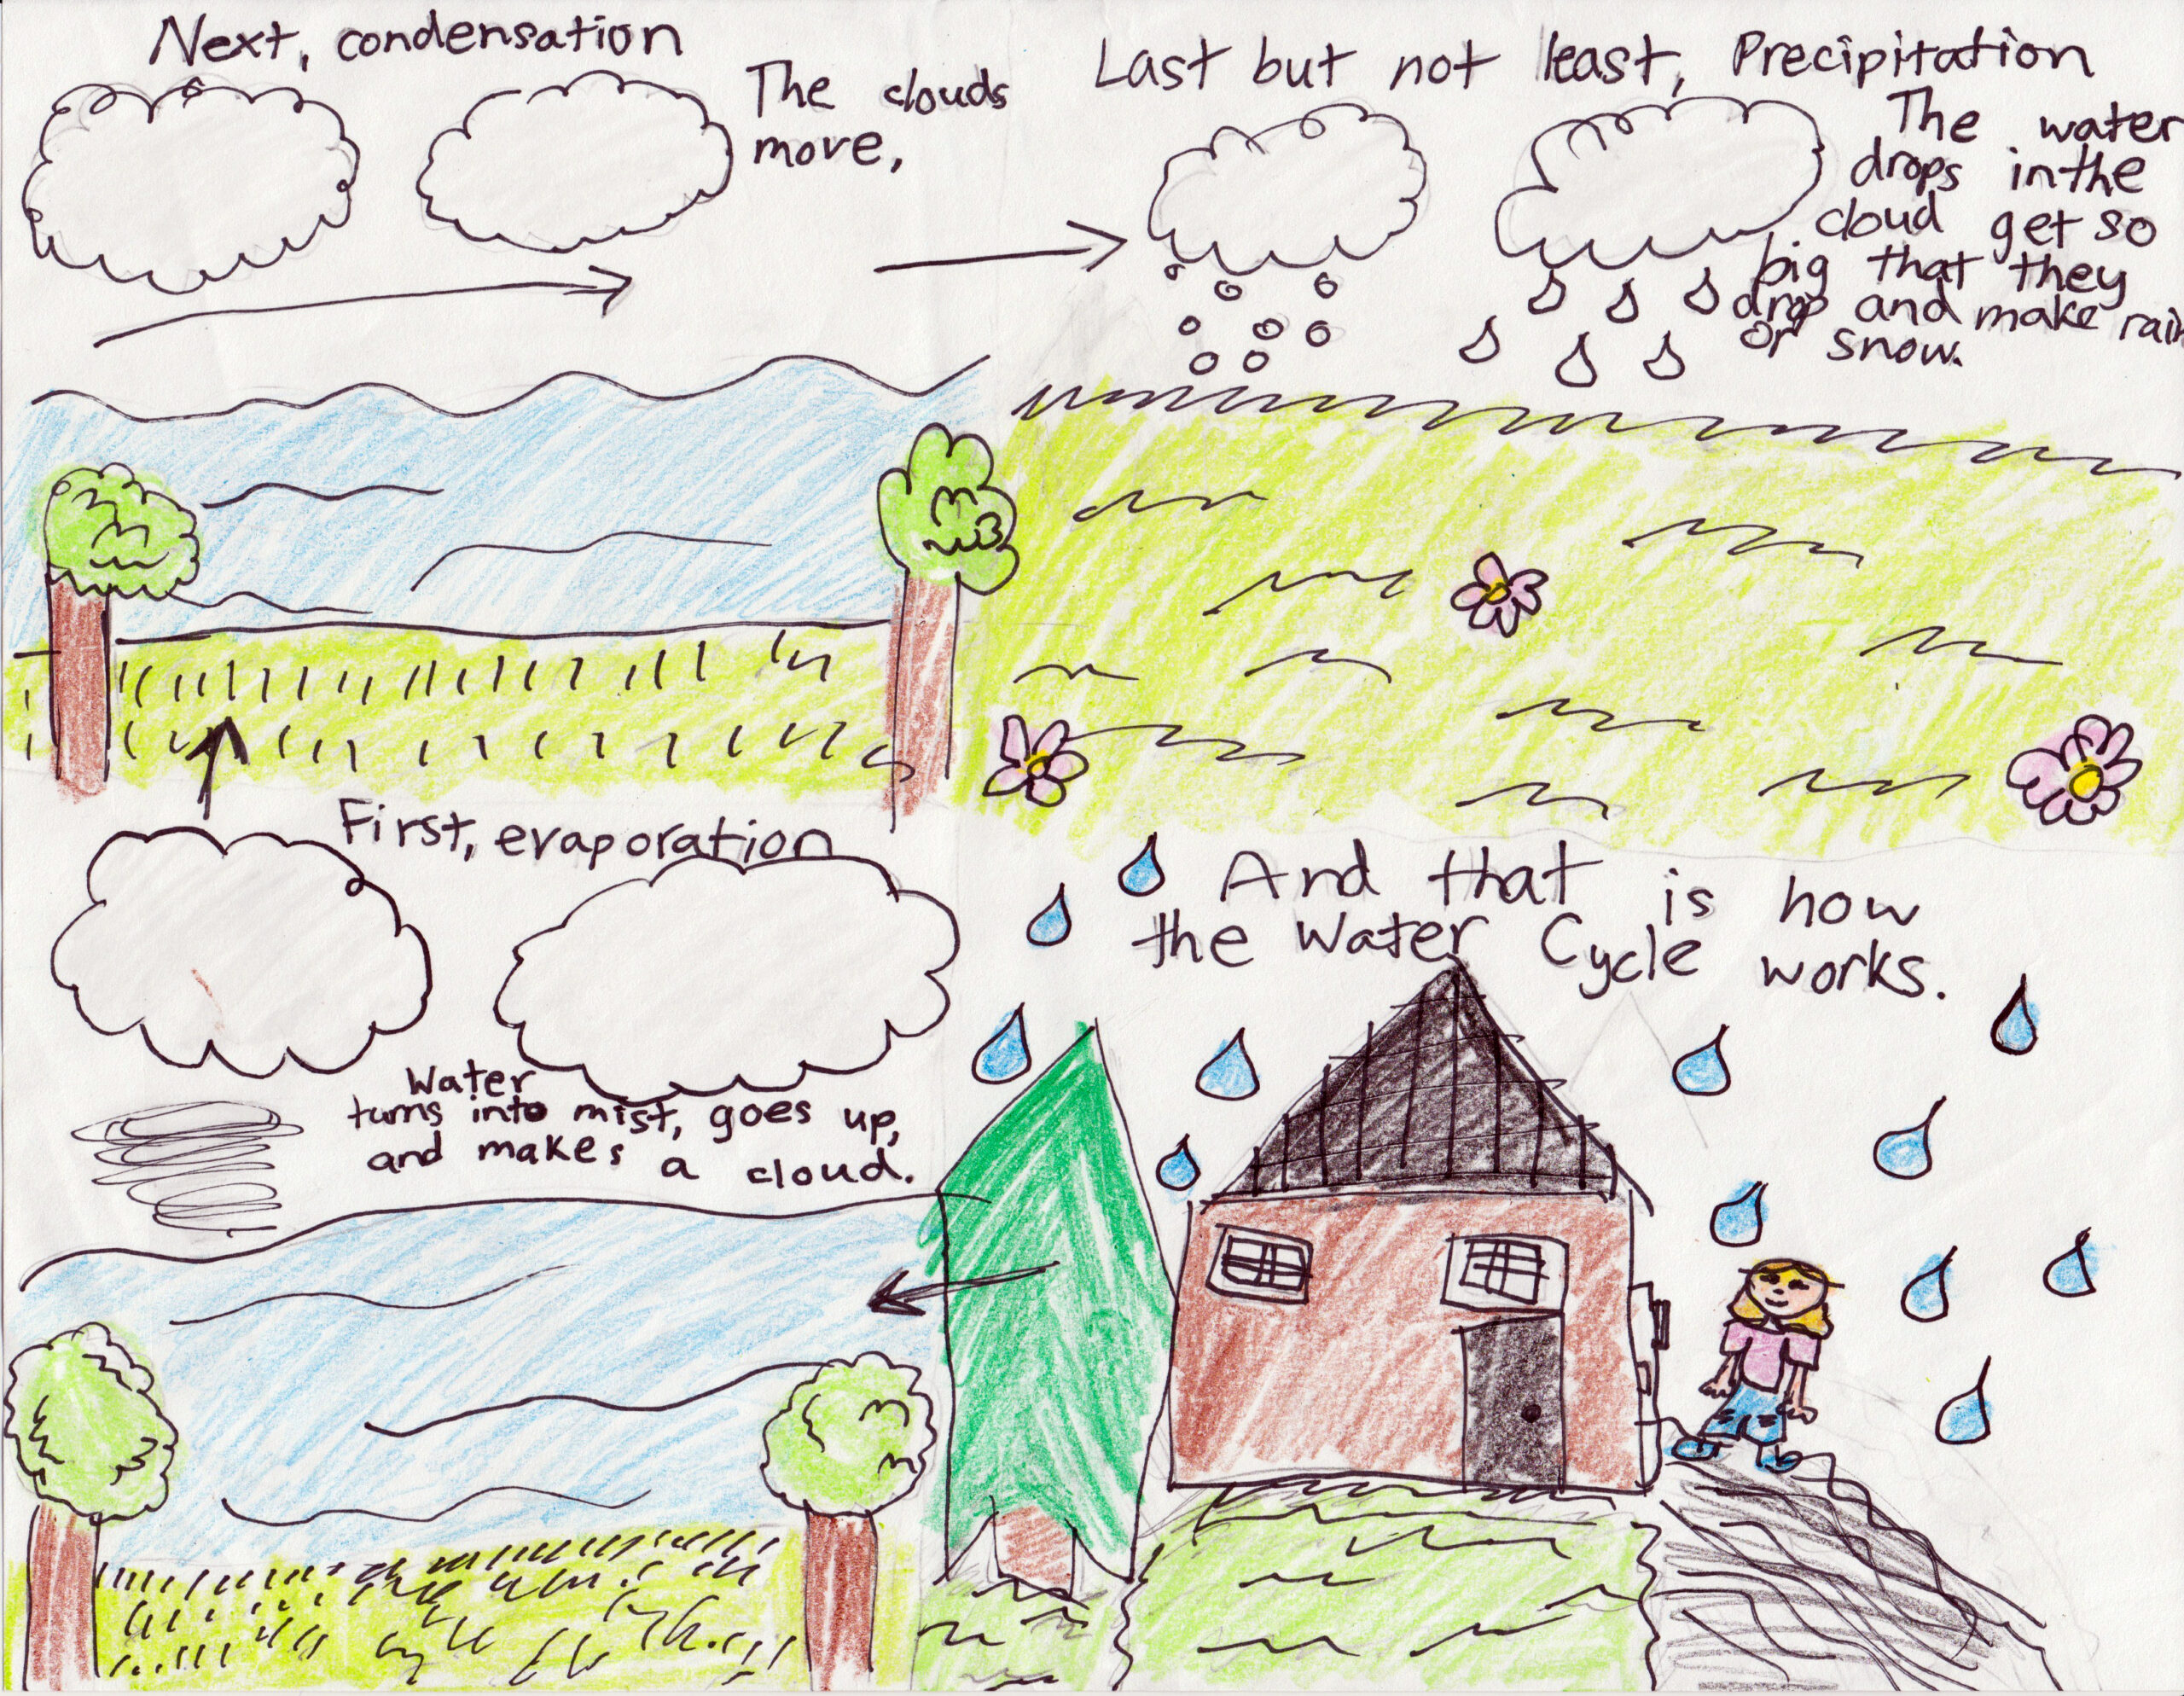 Next, condensation
The clouds
move,
Last but not least, Precipitation
The water
drops in the
cloud get so
big that they
drop and make rain
or snow.
First, evaporation
Water
turns into mist, goes up,
and makes a cloud.
And that is how
the Water Cycle works.